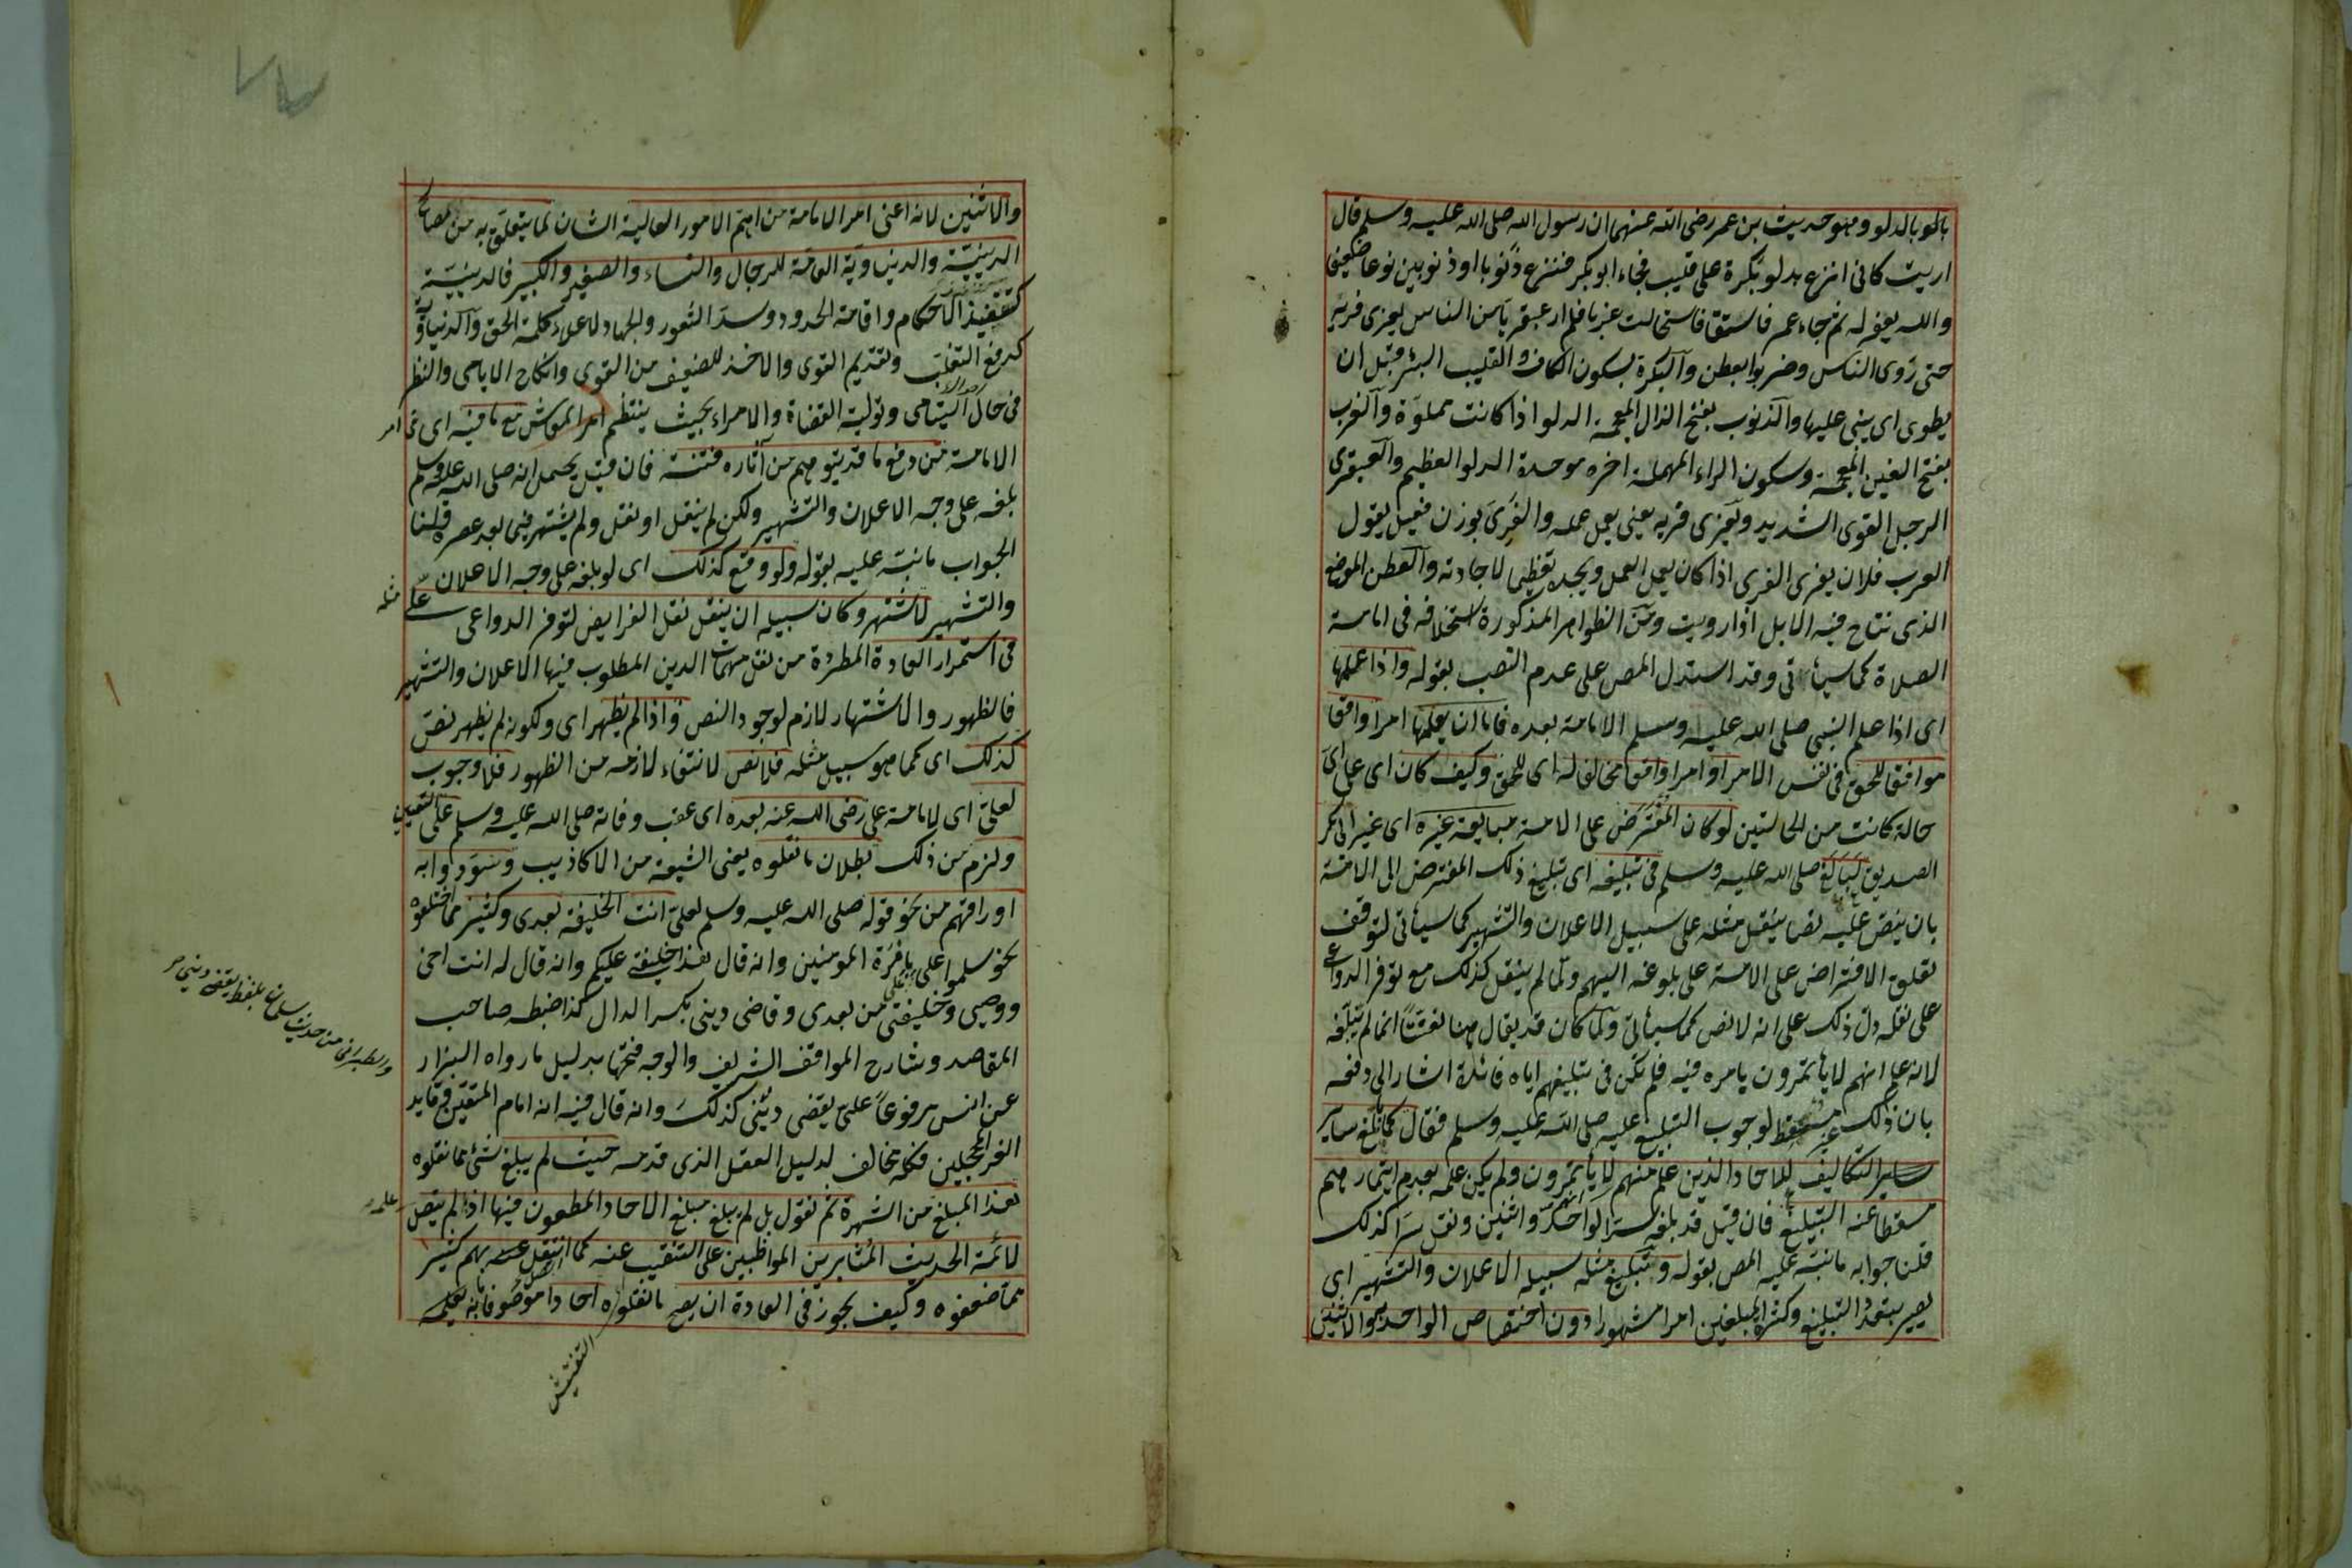 بالموبالدلو وهو حديث بن عمر رضى الله عنهما ان رسول الله صلى الله عليه وسلم قال
اريت كانى انزع بدلو بكرة على قليب فجاء ابو بكر فنزع ذنوبا او ذنوبين نزعا ضعيفا
والله يغفر له ثم جاء عمر فاستقا فاستحالت غربا فلم ار عبقريا من الناس يفرى فريه
حتى روى الناس وضربوا بعطن والبكرة بسكون الكاف والقليب البئر قبل ان
يطوى اى يبنى عليها والذنوب بفتح الذال المعجمة الدلو اذا كانت مملوة والغرب
بفتح الغين المعجمة وسكون الراء المهملة اخره موحدة الدلو العظيم والعبقرى
الرجل القوى الشديد ويفرى فريه يعنى يعمل عمله والفرى بوزن فعيل يقول
العرب فلان يفرى الفرى اذا كان يعمل العمل ويجيده تعظيما لاجادته والعطن الموضع
الذى تناخ فيه الابل اذا رويت ومن الظواهر المذكورة استخلافه فى امامة
الصلاة كما سيأتى وقد استدل المص على عدم النصب بقوله واذا علمها
اى اذا علم النبى صلى الله عليه وسلم الامامة بعده فاما ان يعلمها امرا واقعا
موافقا للحق فى نفس الامر او امرا واقعا مخالفا له اى للحق وكيف كان اى على اى
حالة كانت من الحالتين لو كان المفترض على الامة مبايعة غيره اى غير ابى بكر
الصديق لبالغ صلى الله عليه وسلم فى تبليغه اى تبليغ ذلك المفترض الى الامة
بان ينص عليه نصا ينقل مثله على سبيل الاعلان والتشهير كما سيأتى لتوقف
تعلق الافتراض على الامة على بلوغه اليهم ولما لم ينقل كذلك مع توفر الدواعى
على نقله دل ذلك على انه لا نص كما سيأتى ولما كان قد يقال هنا تعنتا انما لم يبلغه
لانه علم انهم لا يأتمرون بامره فيه فلم تكن فى تبليغهم اياه فائدة اشار الى دفعه
بان ذلك غير مسقط لوجوب التبليغ عليه صلى الله عليه وسلم فقال كما بلغ ساير
ساير التكاليف للاحاد الذين علم منهم لا يأتمرون ولم يكن علمه بعدم ايتمارهم
مسقطا عنه التبليغ فان قيل قد بلغه سرا لواحد واثنين ونقل سرا كذلك
قلنا جوابه ما نبه عليه المص بقوله وتبليغ مثله سبيله الاعلان والتشهير اى
يصير بتعدد التبليغ وكثرة المبلغين امرا مشهورا دون اختصاص الواحد به والاثنين
والاثنين لانه اعنى امر الامامة من اهم الامور العالية الشان لما يتعلق به من المصالح
الدينية والدنياوية العامة للرجال والنساء والصغير والكبير فالدينية
كتنفيذ الاحكام واقامة الحدود وسد الثغور والجهاد لاعلاء كلمة الحق والدنياوية
كدفع التغلب وتقديم القوى والاخذ للضعيف من القوى وانكاح الايامى والنظر
فى حال اليتامى وتولية القضاة والامراء بحيث ينتظم امر المعاش مع ما فيه اى فى امر
الامامة من دفع ما قد يتوهم من اثاره فتنة فان قيل يحتمل انه صلى الله عليه وسلم
بلغه على وجه الاعلان والتشهير ولكن لم ينقل او نقل ولم يشتهر فيما بعد عصره قلنا
الجواب ما نبه عليه بقوله ولو وقع كذلك اى لو بلغه على وجه الاعلان
والتشهير لاشتهر وكان سبيله ان ينقل نقل الفرايض لتوفر الدواعى على مثله
فى استمرار العادة المطردة من نقل مهمات الدين المطلوب فيها الاعلان والتشهير
فالظهور والاشتهار لازم لوجود النص واذا لم يظهر اى ولكونه لم يظهر نص
كذلك اى كما هو سبيل مثله فلا نص لانتفاء لازمه من الظهور فلا وجوب
لعلى اى لامامة على رضى الله عنه بعده اى عقب وفاته صلى الله عليه وسلم على التعيين
ولزم من ذلك بطلان ما نقلوه يعنى الشيعة من الاكاذيب وسودوا به
اوراقهم من نحو قوله صلى الله عليه وسلم لعلى انت الخليفة بعدى وكثير مما اختلقوه
نحو سلموا على على بامرة المومنين وانه قال هذا خليفتى عليكم وانه قال له انت اخى
ووصيى وخليفتى من بعدى وقاضى دينى بكسر الدال كذا ضبطه صاحب
المقاصد وشارح المواقف الشريف والوجه فتحها بدليل ما رواه البزار
عن انس مرفوعا على يقضى دينى كذلك وانه قال فيه انه امام المتقين وقايد
والطبرانى من حديث سلمان بلفظ يقضى دينى
الغر المحجلين فكله مخالف لدليل العقل الذى قدمه حيث لم يبلغ شئ مما نقلوه
هذا المبلغ من الشهرة ثم نقول بل لم يبلغ مبلغ الاحاد المطعون فيها اذا لم يتصل علمه
لائمة الحديث المثابرين المواظبين على التنقيب عنه كما اتصل بهم كثير
مما ضعفوه وكيف يجوز فى العادة ان يصح ما نقلوه احادا موصوفا بانه يعلمه
التفتيش